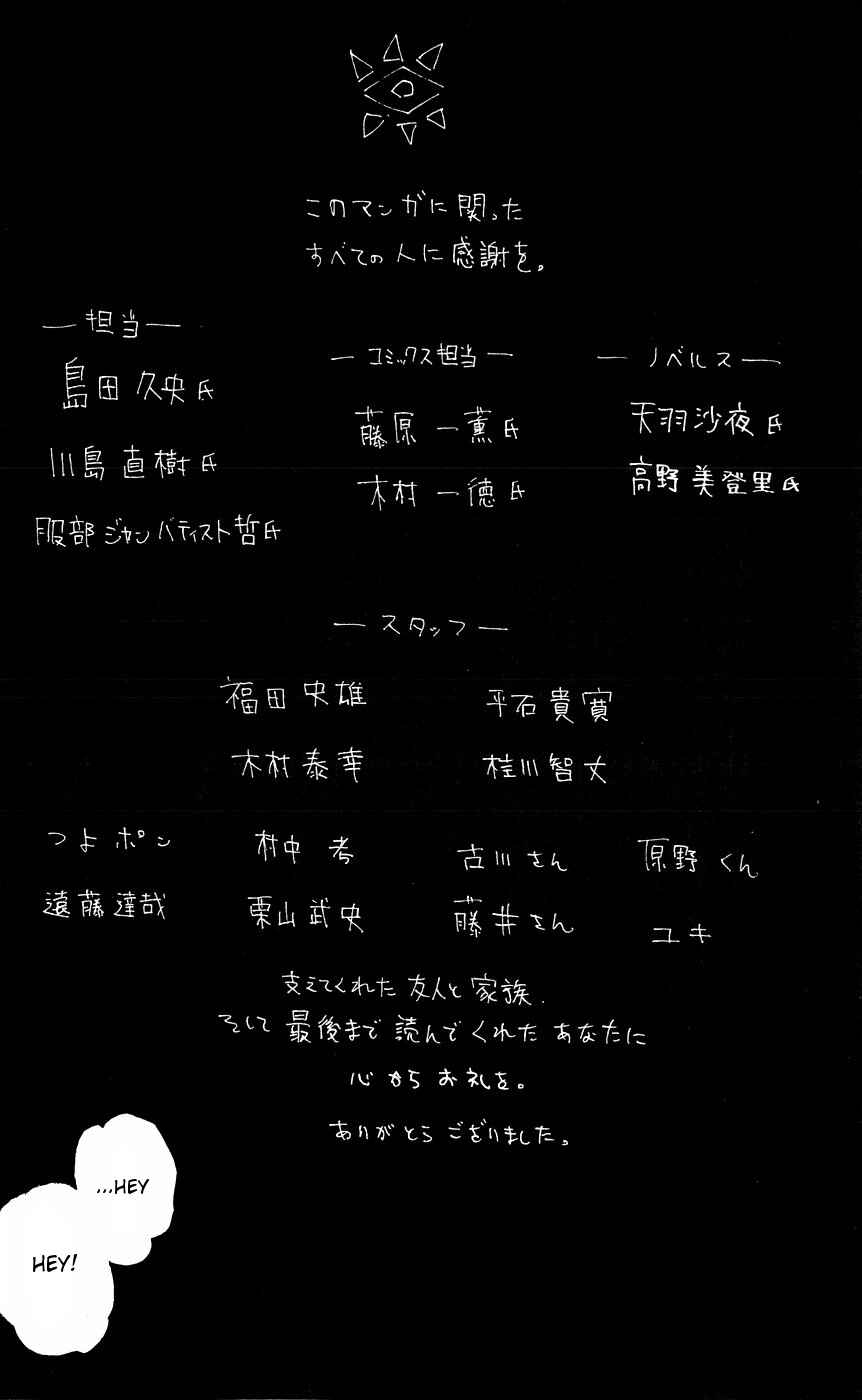 このマンガに関った
すべての人に感謝を。
—担当—
島田久央氏
川島直樹氏
服部ジャンバティスト哲氏
—コミックス担当—
藤原一薫氏
木村一徳氏
—ノベルス—
天羽沙夜氏
高野美登里氏
—スタッフ—
福田史雄
平石貴寛
木村泰幸
桂川智丈
つよポン
村中孝
古川さん
原野くん
遠藤達哉
栗山武史
藤井さん
ユキ
支えてくれた友人と家族.
そして最後まで読んでくれたあなたに
心からお礼を。
ありがとうございました。
...HEY
HEY!